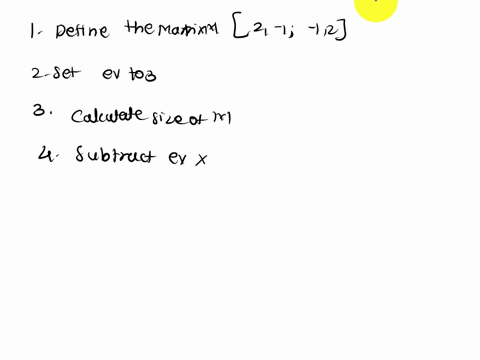 1. Define the Matrix [2, -1; -1, 2]
2. Set ev to 3
3. Calculate size of M
4. Subtract ev x